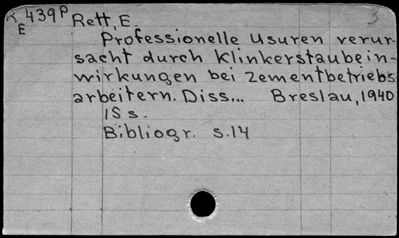 R 439P Rett, E. 3
E
Professionelle Usuren verur-
sacht durch Klinkerstaubein-
wirkungen bei Zementbetriebs
arbeitern. Diss... Breslau, 1940
15 s.
Bibliogr. s.14